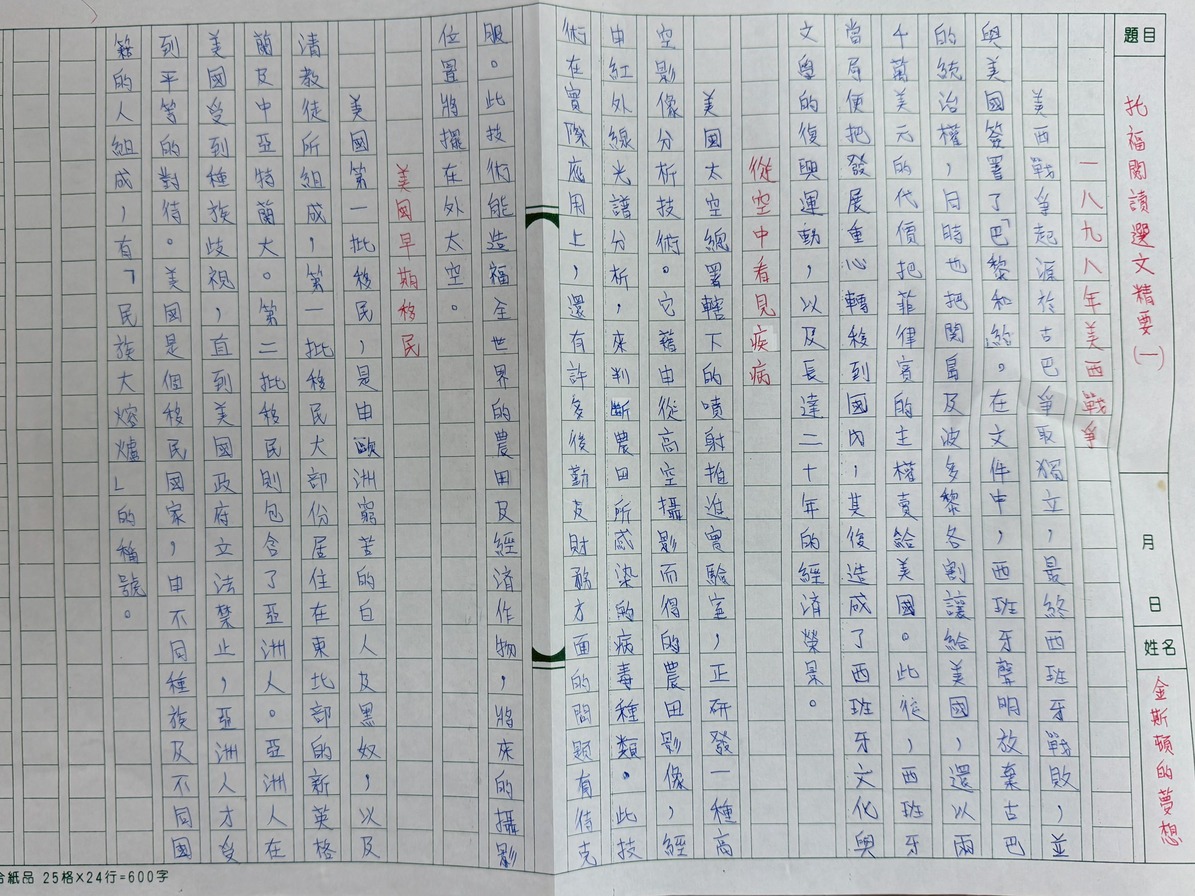 題目
托福閱讀選文精要(一)
月
日
姓名
金斯頓的夢想
一八九八年美西戰爭
美西戰爭起源於古巴爭取獨立，最終西班牙戰敗，並
與美國簽署了「巴黎和約。在文件中，西班牙聲明放棄古巴
的統治權，同時也把關島及波多黎各割讓給美國，還以兩
千萬美元的代價把菲律賓的主權賣給美國。此後，西班牙
當局便把發展重心轉移到國內，其後造成了西班牙文化與
文學的復興運動，以及長達二十年的經濟榮景。
從空中看見疾病
美國太空總署轄下的噴射推進實驗室，正研發一種高
空影像分析技術。它藉由從高空攝影而得的農田影像，經
由紅外線光譜分析，來判斷農田所感染的病毒種類。此技
術在實際應用上，還有許多後勤及財務方面的問題有待克
服。此技術能造福全世界的農田及經濟作物，將來的攝影
位置將擺在外太空。
美國早期移民
美國第一批移民，是由歐洲窮苦的白人及黑奴，以及
清教徒所組成，第一批移民大部份居住在東北部的新英格
蘭及中亞特蘭大。第二批移民則包含了亞洲人。亞洲人在
美國受到種族歧視，直到美國政府立法禁止，亞洲人才受
到平等的對待。美國是個移民國家，由不同種族及不同國
籍的人組成，有「民族大熔爐」的稱號。
合紙品 25格×24行=600字